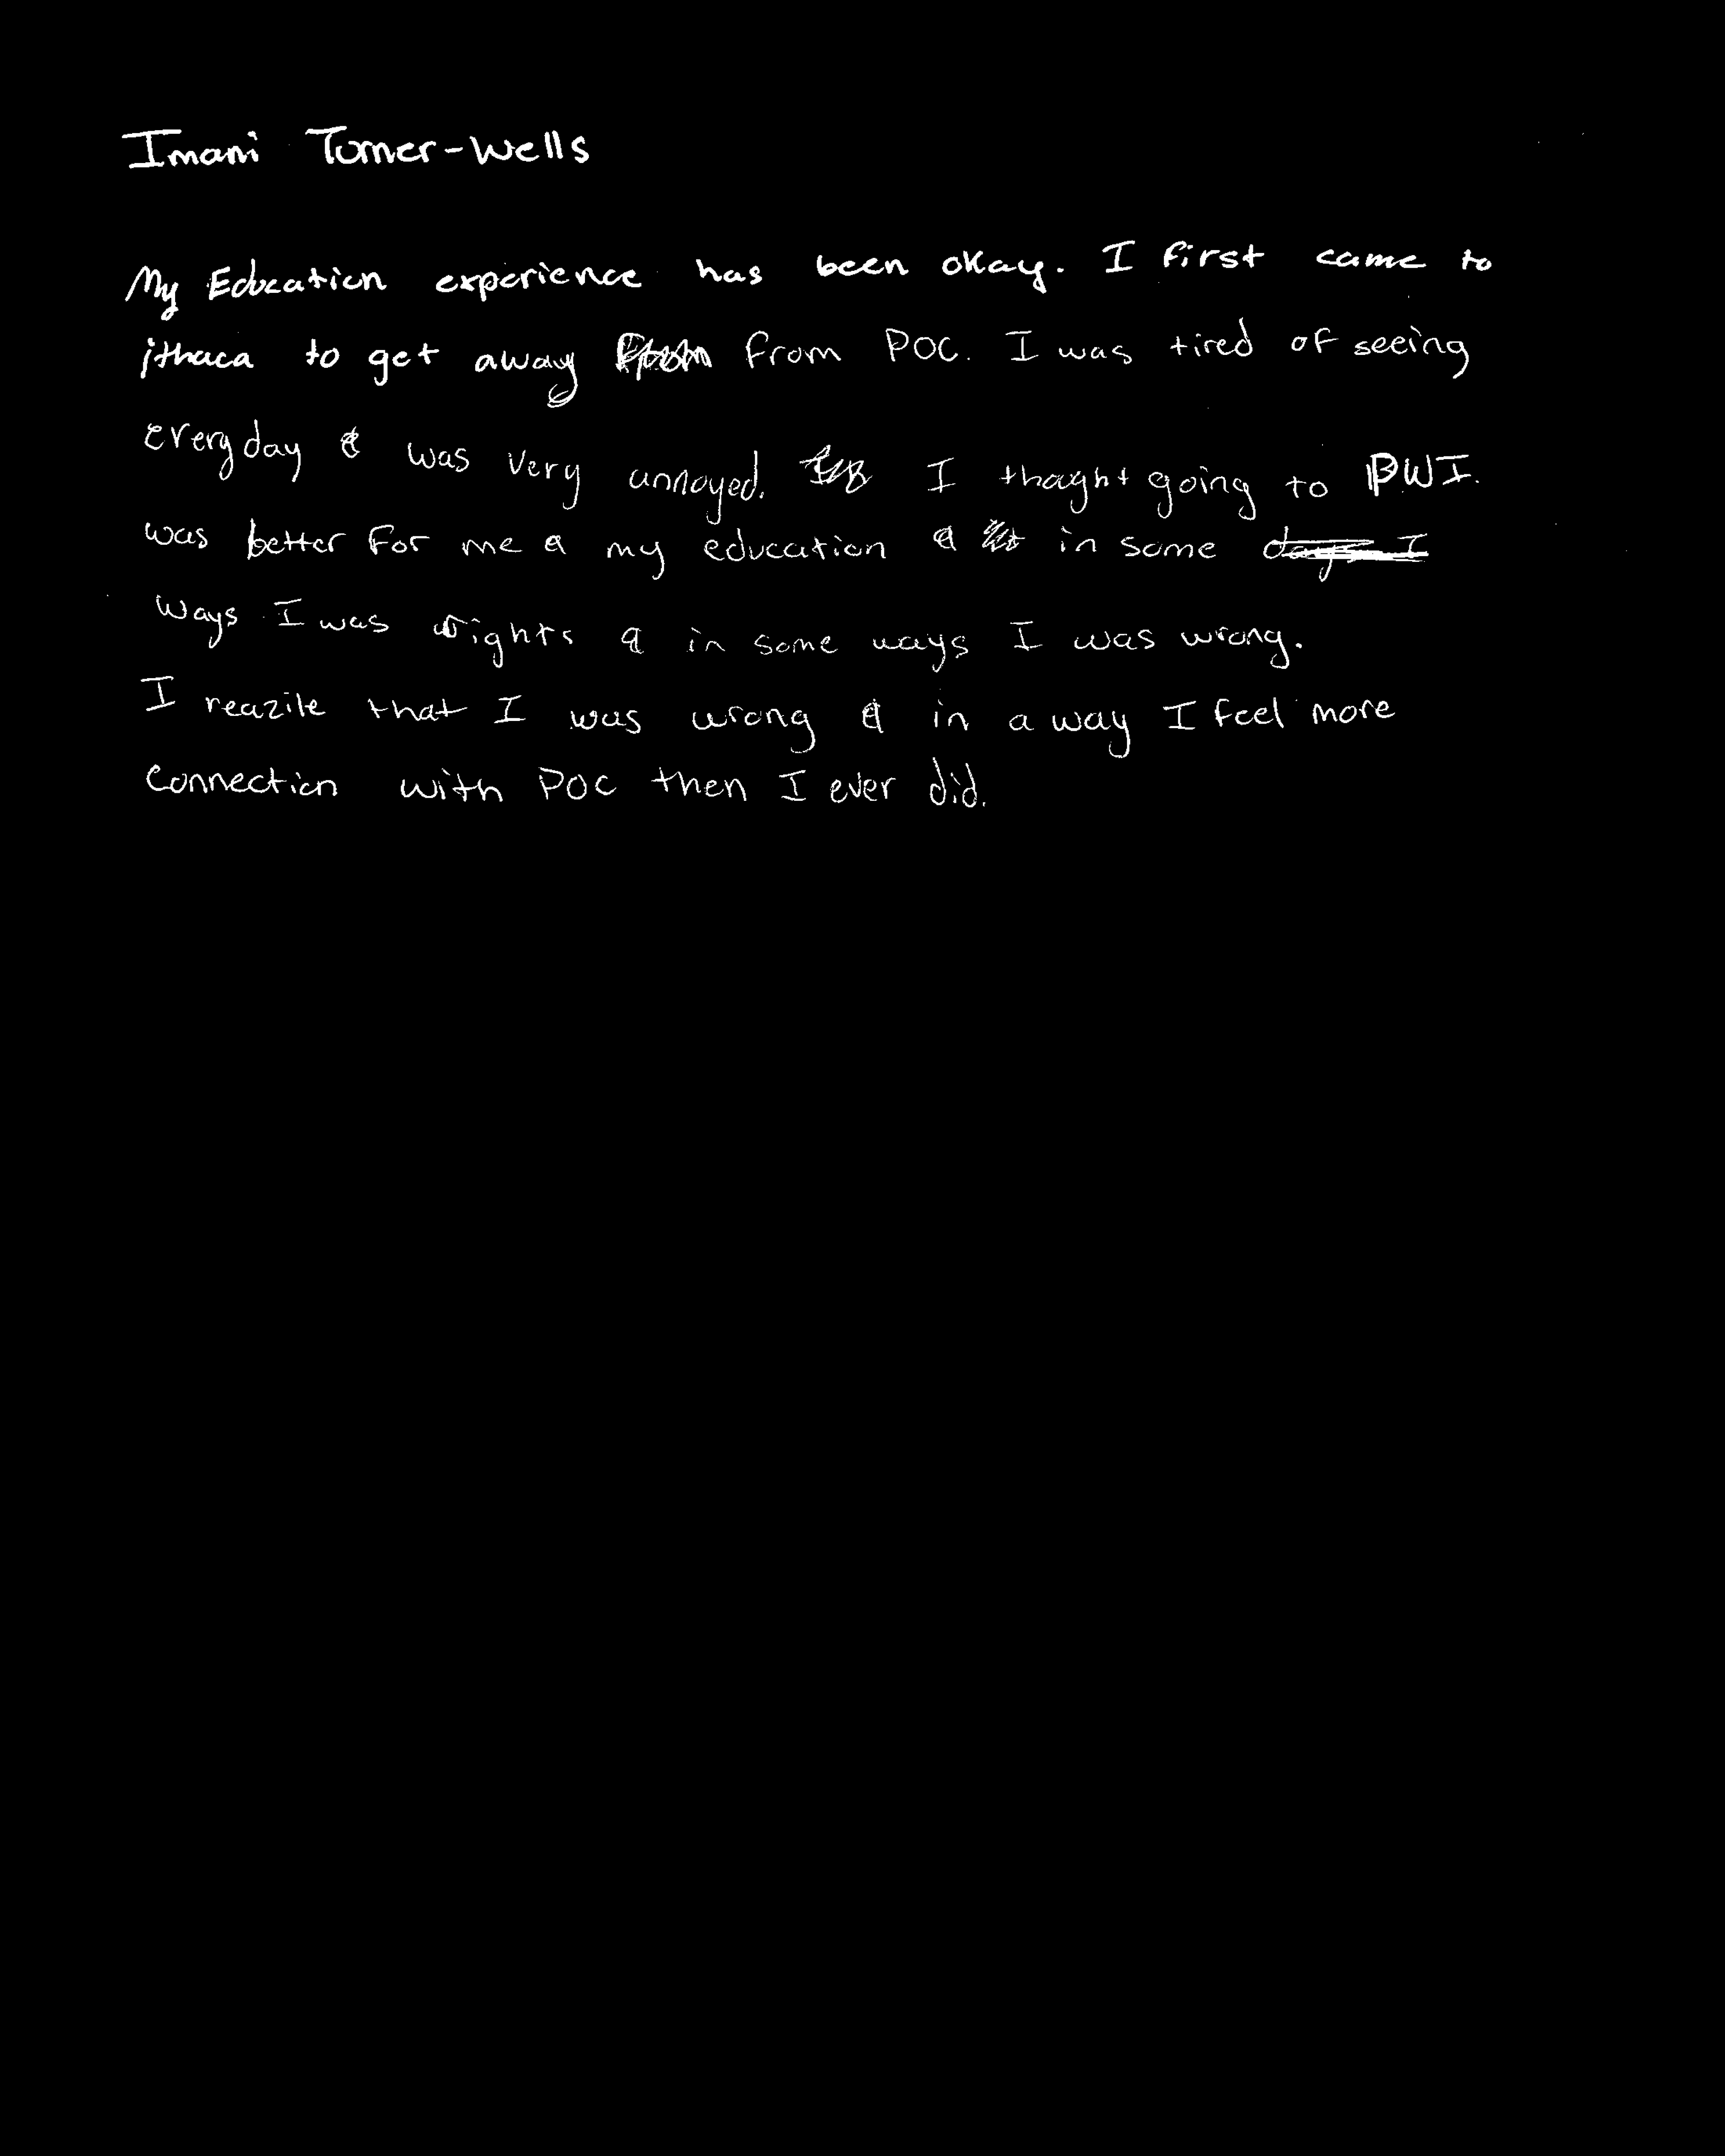 Imani Turner-Wells
My Education experience has been okay. I first came to
ithaca to get away from POC. I was tired of seeing
everyday & was very annoyed. I thaght going to PWI.
was better for me & my education & in some days I
ways I was rights & in some ways I was wrong.
I reazile that I was wrong & in a way I feel more
connection with POC then I ever did.